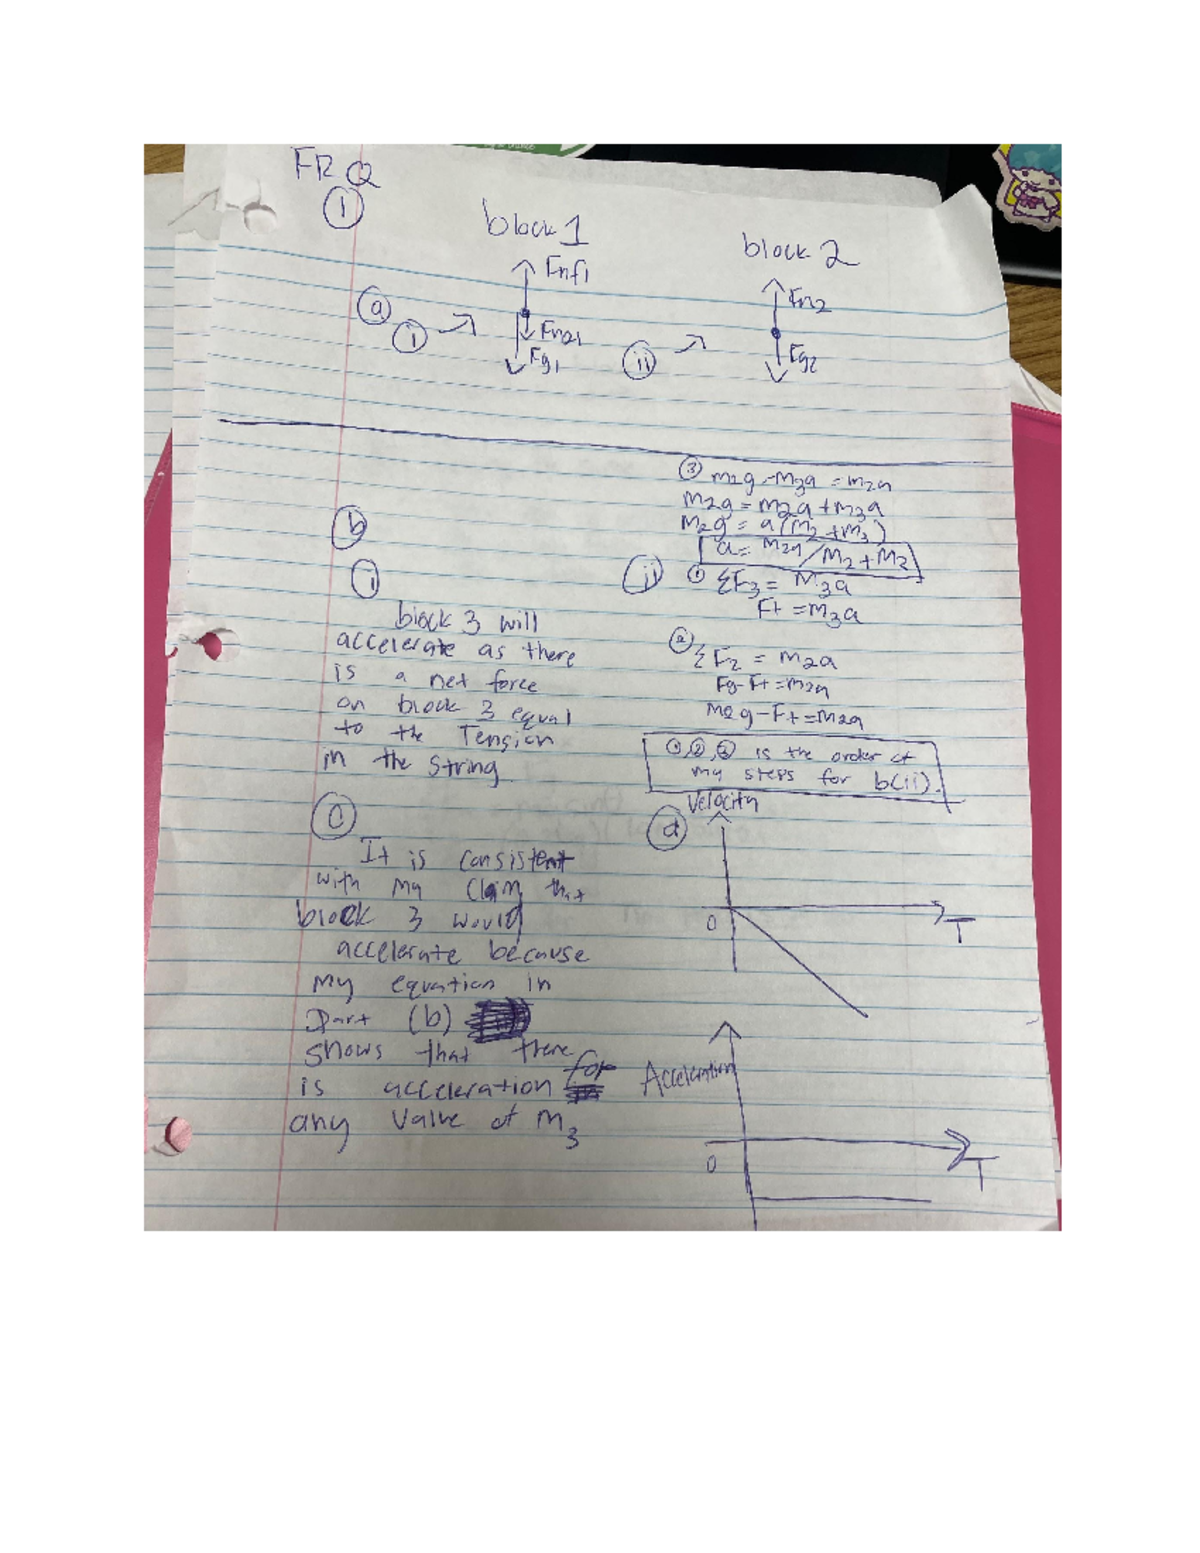 FRQ
①
block 1
Fnf1
ⓐ
ⓘ
Fn21
Fg1
block 2
Fn2
ⅱ
Fg2
ⓑ
ⓘ
block 3 will
accelerate as there
is a net force
on block 3 equal
to the Tension
in the string
ⅱ
③ m2g - m3a = m2a
m2g = m2a + m3a
m2g = a(m2 + m3)
① ΣF3 = m3a
Ft = m3a
② ΣF2 = m2a
Fg - Ft = m2a
m2g - Ft = m2a
①,②,③ is the order of
my steps for b(ii).
ⓒ
It is consistent
with my claim that
block 3 would
accelerate because
my equation in
part (b)
shows that there
is acceleration for
any value of m3
ⓓ
Velocity
0
T
Acceleration
0
T